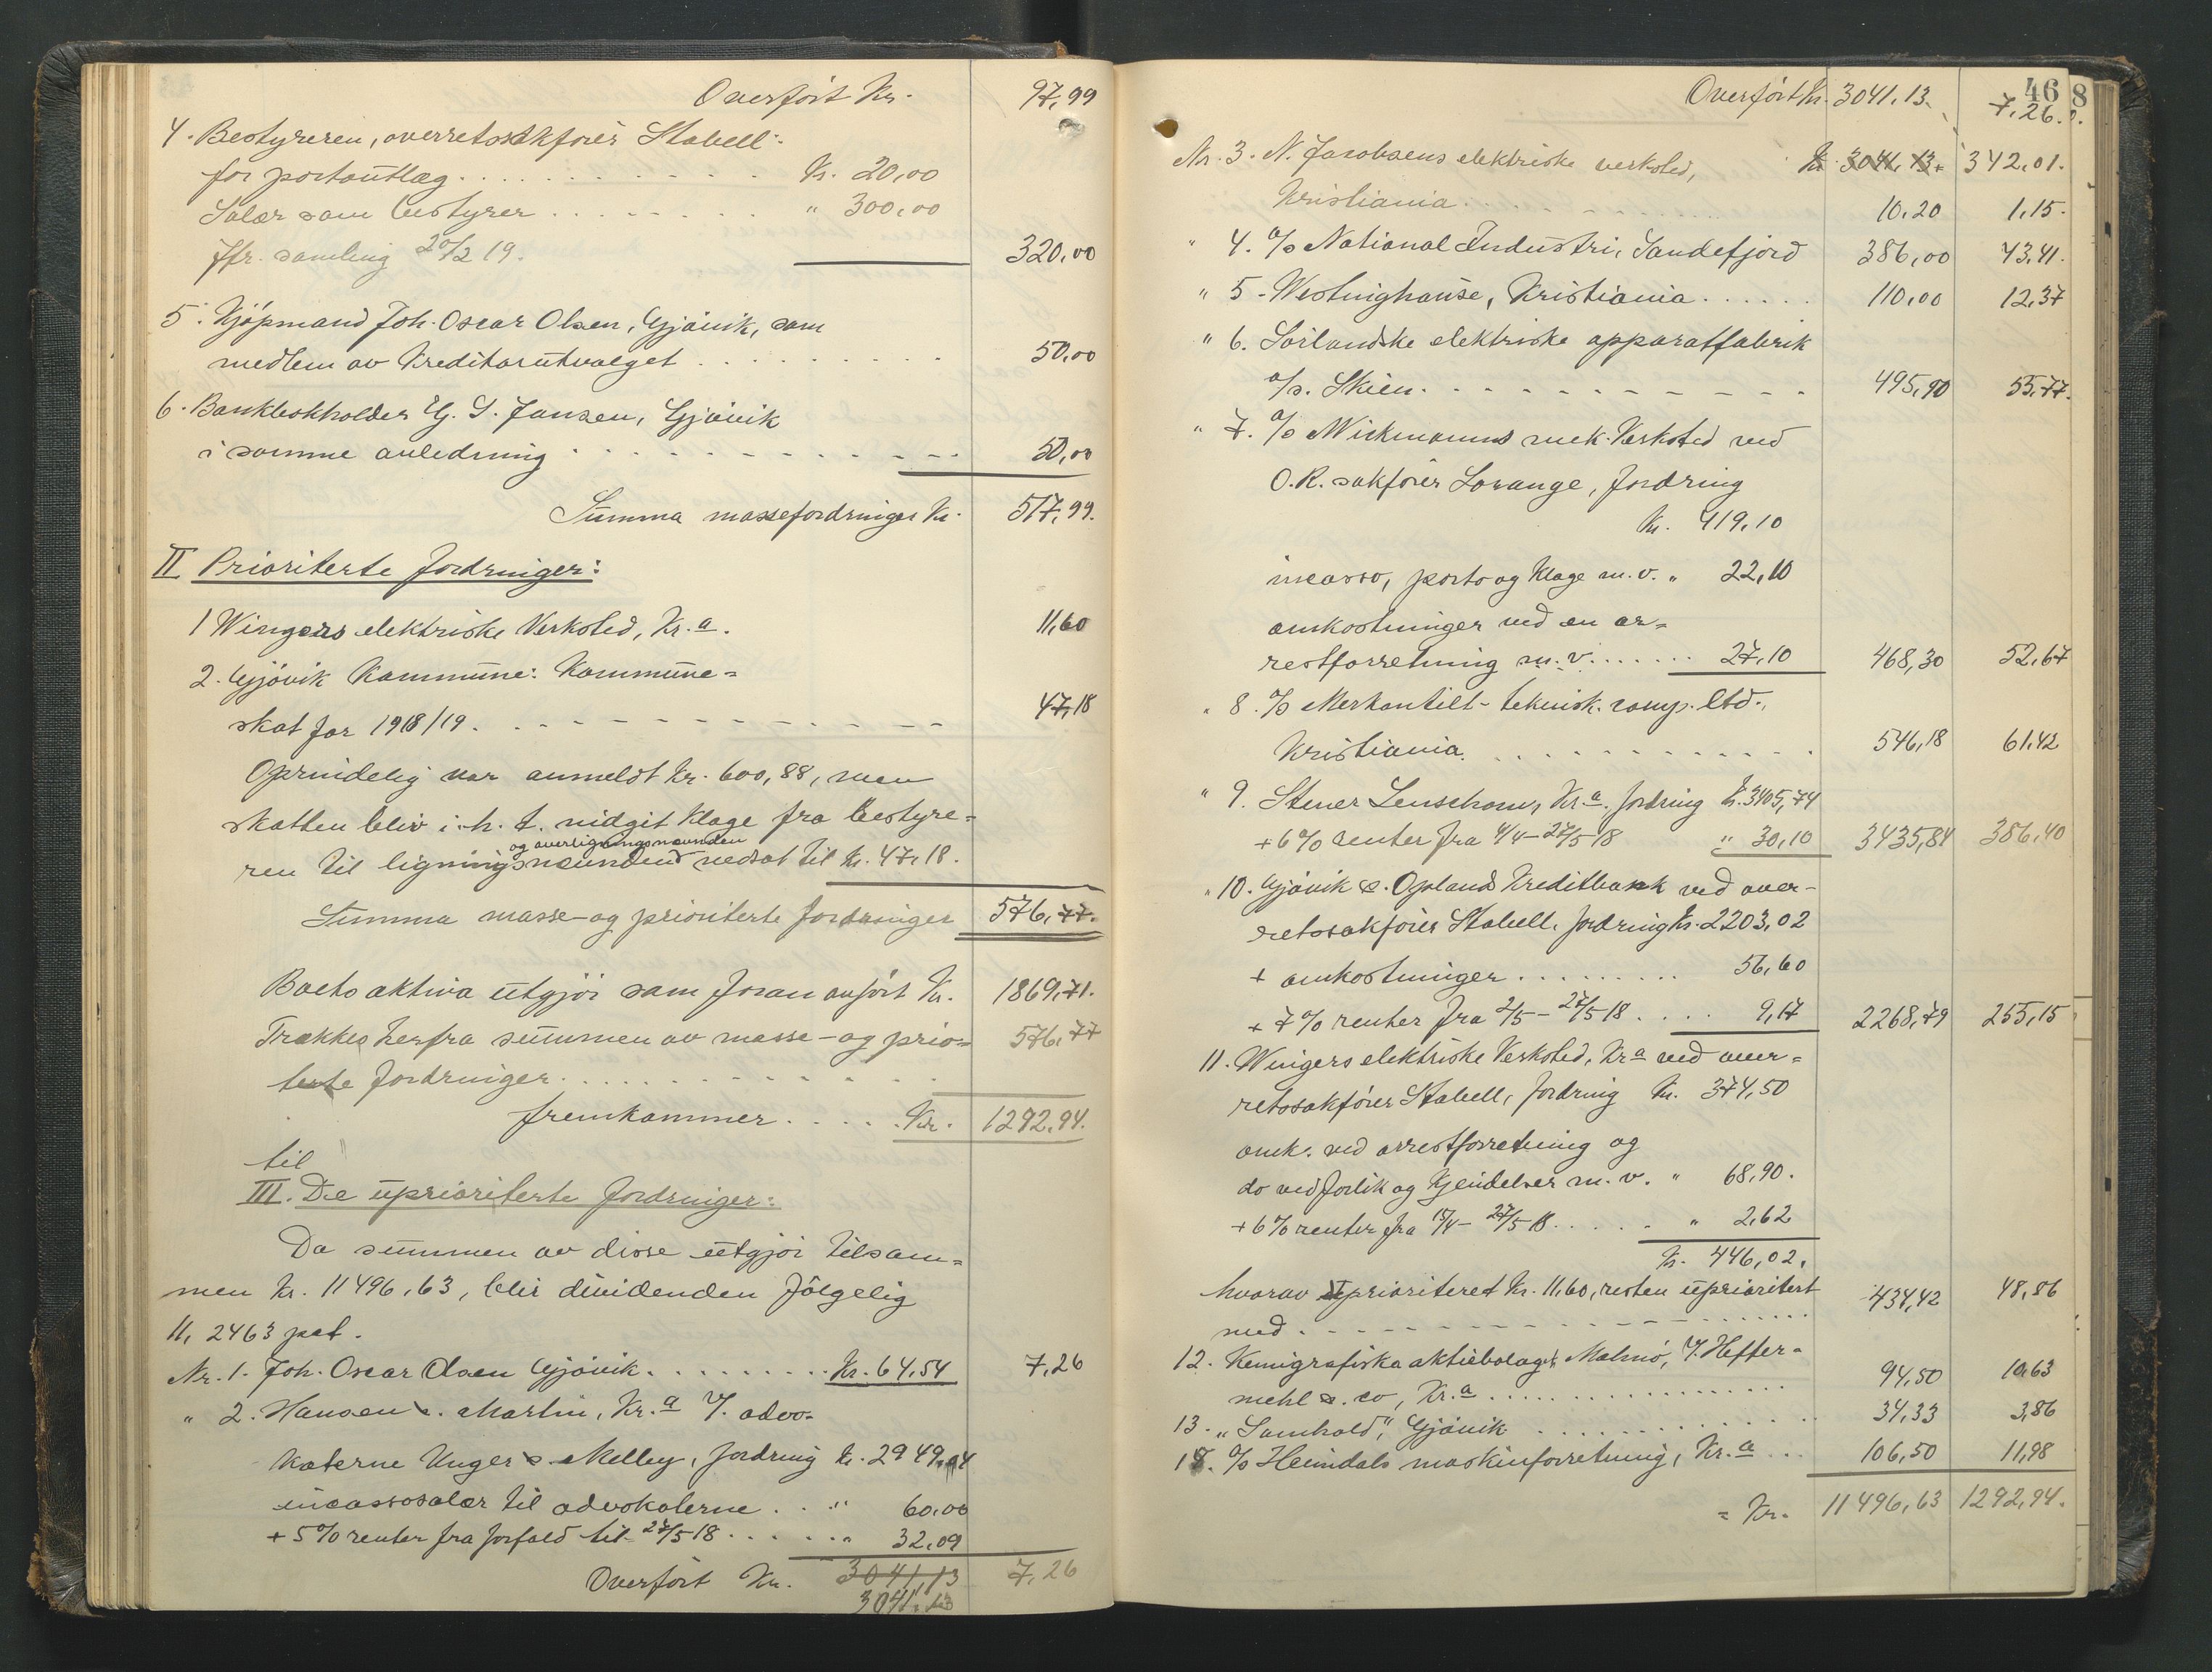 Overført Kr. 97,99
4. Bestyreren, overretssakfører Stabell:
for portoutlæg . . . . . . . . . . Kr. 20,00
Salær som bestyrer . . . . . . . . " 300,00
Jfr. samling 20/2 19. 320,00
5. Kjøpmand Joh. Oscar Olsen, Gjøvik, som
medlem av Kreditorutvalget . . . . . . . . . 50,00
6. Bankbokholder G. S. Jansen, Gjøvik
i samme anledning . . . . . . . . . . . 50,00
Summa massefordringer Kr. 517,99.
II Prioriterte fordringer:
1 Wingers elektriske Verksted, Kr.a. 11,60
2. Gjøvik Kommune: Kommune=
skat for 1918/19 . . . . . . . . . . . 47,18
Oprindelig var anmeldt Kr. 600,88, men
skatten blev i. h. t. utdgit klage fra bestyre=
og overligningsnævnden
ren til ligningsnævnden nedsat til Kr. 47,18.
Summa masse- og prioriterte fordringer 576,77.
Boets aktiva utgjør som foran anført Kr. 1869,71.
Trækkes herfra summen av masse- og prio= 576,77
terte fordringer . . . . . . . . . . .
fremkommer . . . . . Kr. 1292,94.
til
III. De uprioriterte fordringer:
Da summen av disse utgjør tilsam=
men Kr. 11496,63, blir dividenden følgelig
11,2463 pct.
Nr. 1. Joh. Oscar Olsen Gjøvik . . . . . . . . . Kr. 64,54 7,26
" 2. Hansen & Martin, Kr.a v. advo-
katerne Unger & Melley, fordring Kr. 2949,04
incassosalær til advokaterne . . . " 60,00
+ 5% renter fra forfald til 27/5 18 . . . . . " 32,09
Overført Kr. 3041,13 7,26
3041,13
46 8
Overført Kr. 3041,13. 7,26.
Nr. 3. N. Jacobsens elektriske verksted, Kr. 3041,13. 342,01.
Kristiania . . . . . . . . . . . . 10,20 1,15.
" 4. A/S National Industri, Sandefjord 386,00 43,41.
" 5. Westinghause, Kristiania . . . . . . 110,00 12,37
" 6. Sørlandske elektriske apparatfabrik
A/S. Skien . . . . . . . . . . . . 495,90 55,77.
" 7. A/S Wickmanns mek. Verksted ved
O.R. sakfører Lorange, fordring
Kr. 419,10
incasso, porto og klage m. v. " 22,10
omkostninger ved en ar=
restforretning m. v. . . . . . . 27,10 468,30 52,67
" 8. A/S Merkantilt-teknisk. comp. Ltd.,
Kristiania . . . . . . . . . . . . 546,18 61,42
" 9. Stener Lenschow, Kr.a. fordring Kr. 3405,74
+ 6% renter fra 4/4 - 27/5 18 " 30,10 3435,84 386,40
" 10. Gjøvik & Opland Kreditbank ved over-
retssakfører Stabell, fordring Kr. 2203,02
+ omkostninger . . . . . . . . . 56,60
+ 7% renter fra 2/5 - 27/5 18 . . . . 9,17 2268,79 255,15
11. Wingers elektriske Verksted, Kr.a ved over=
retssakfører Stabell, fordring Kr. 374,50
omk. ved arrestforretning og
do ved forlik og kjendelser m. v. " 68,90.
+ 6% renter fra 15/4 - 27/5 18 . . . . . " 2,62
Kr. 446,02.
hvorav prioriteret Kr. 11,60, resten uprioritert 434,42 48,86
med . . . . . . . . . . . . . .
12. Kemigrafiska aktiebolaget, Malmø, v. Heffer=
mehl & co, Kr.a . . . . . . . . . . . . . . . 94,50 10,63
13. "Samhold", Gjøvik . . . . . . . . . . 34,33 3,86
18. A/S Heimdals maskinforretning, Kr.a . . . 106,50 11,98
= Kr. 11496,63 1292,94.